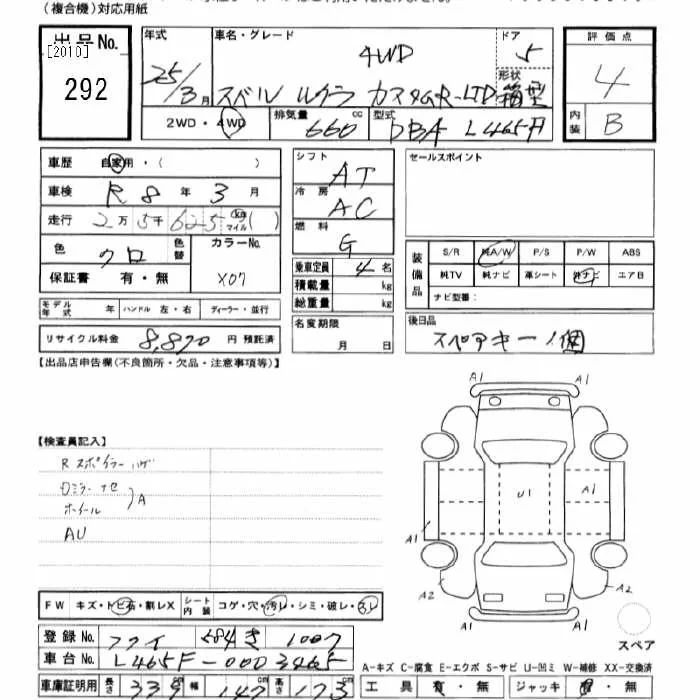 (複合機)対応用紙
出品No. 年式 車名・グレード ドア 評価点
[2010] 4WD 5
292 25/3月 スバル ルクラ カスタムR-LTD 形状 箱型 4
2WD・4WD 排気量 660 cc 型式 DBA L465F 内装 B
車歴 自家用・( ) シフト AT セールスポイント
車検 R8年3月 冷房 AC
走行 2万5千625 km マイル ( ) 燃料 G
色 クロ 色替 カラーNo. X07 乗車定員 4名
装備品 S/R 純A/W P/S P/W ABS
純TV 純ナビ 革シート エア日
保証書 有・無 積載量 kg ナビ型番:
総重量 kg
モデル年式 年 ハンドル 左・右 ディーラー・並行 名変期限 月 日 後日品
リサイクル料金 8,870 円 預託済 スペアキー1個
【出品店申告欄(不良箇所・欠品・注意事項等)】
A1 A1
【検査員記入】
Rスポイラーハゲ
ホイール A
AU
U1 A1
A1 A1
A2 A2
FW キズ・トビ石・割レX シート内装 コゲ・穴・汚レ・シミ・破レ・スレ
スペア
登録No. 584 き 1007
車台No. L465F-0003465
A-キズ C-腐食 E-エクボ S-サビ U-凹ミ W-補修 XX-交換済
車庫証明用 長さ 339 cm 幅 147 cm 高さ 173 cm 工具 有・無 ジャッキ 有・無